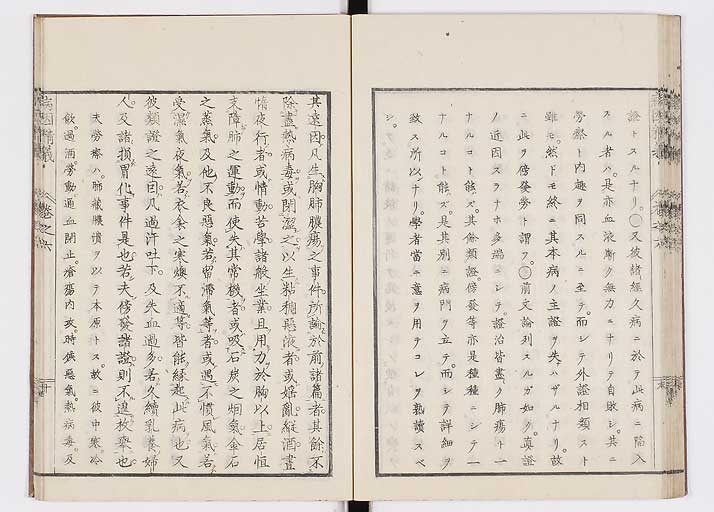 證トスルナリ。〇又彼諸經久病ニ於ヲ此病ニ陷入
スル者ハ。是亦血液漸ク無力ニナリテ自敗シ。其ニ
勞瘵ト内趣ヲ同スルニ至テ。而シテ外證相類スト
雖モ。然ドモ終ニ其本病ノ主證ヲ失ハザルナリ。故
ニ此ヲ傍發勞ト謂フ。〇前文論列スルガ如ク。眞證
ノ近因スラナホ多端ニシテ。證治皆盡ク肺瘍ト一
ナルコト能ズ。其餘類證。傍發等亦是種種ニシテ一
ナルコト能ズ。是其別ニ病門ヲ立テ。而シテ詳細ヲ
致ス所以ナリ。學者當ニ意ヲ用テコレヲ熟讀スベ
シ。
其遠因。凡生胸肺膿瘍之事件。所論於前諸篇者。其餘不
除盡熱病毒。或閉濕之。以生粘稠惡液者。或婬亂縱酒。晝
惰夜行者。或情動苦學。諸般坐業。且用力於胸以上。居恒
支障肺之運動。而使失其常機者。或吸石炭之烟氣。金石
之蒸氣。及他不良惡氣。若留滯氣等者。或遇不慣風氣。若
受濕氣夜氣。若衣衾之寒燠不適等。皆能縁起此病也。又
彼類證之遠因。凡過汗吐下。及失血過多。若久續乳養婦
人。及諸損胃化事件是也。若夫傍發諸證。則不遑枚擧也。
夫勞瘵ハ。肺藏膿潰ヲ以テ本原トス。故ニ彼中寒。冷
飲。過酒。勞動。通血閉止。瘡瘍内攻。時候惡氣。熱病毒。及
病因精義
卷之六